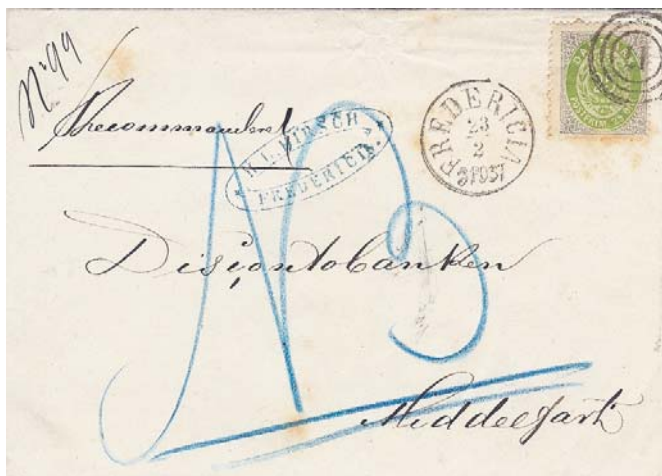 No 99
Recommanderet
M. L. HIRSCH
FREDERICIA.
FREDERICIA
23
2
DANMARK
NB
Discontobanken
Middelfart